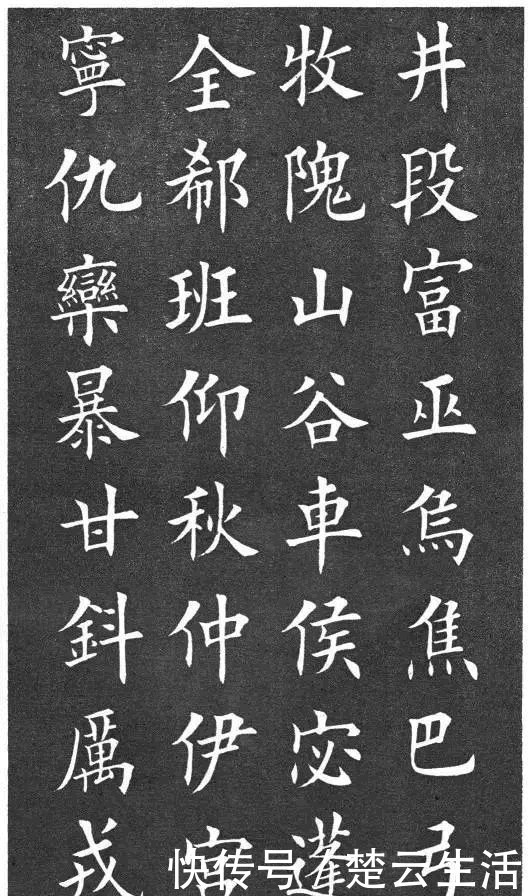 井段富巫烏焦巴弓
牧隗山谷車侯宓蓬
全郗班仰秋仲伊宮
寧仇欒暴甘鈄厲戎
快传号/楚云生活